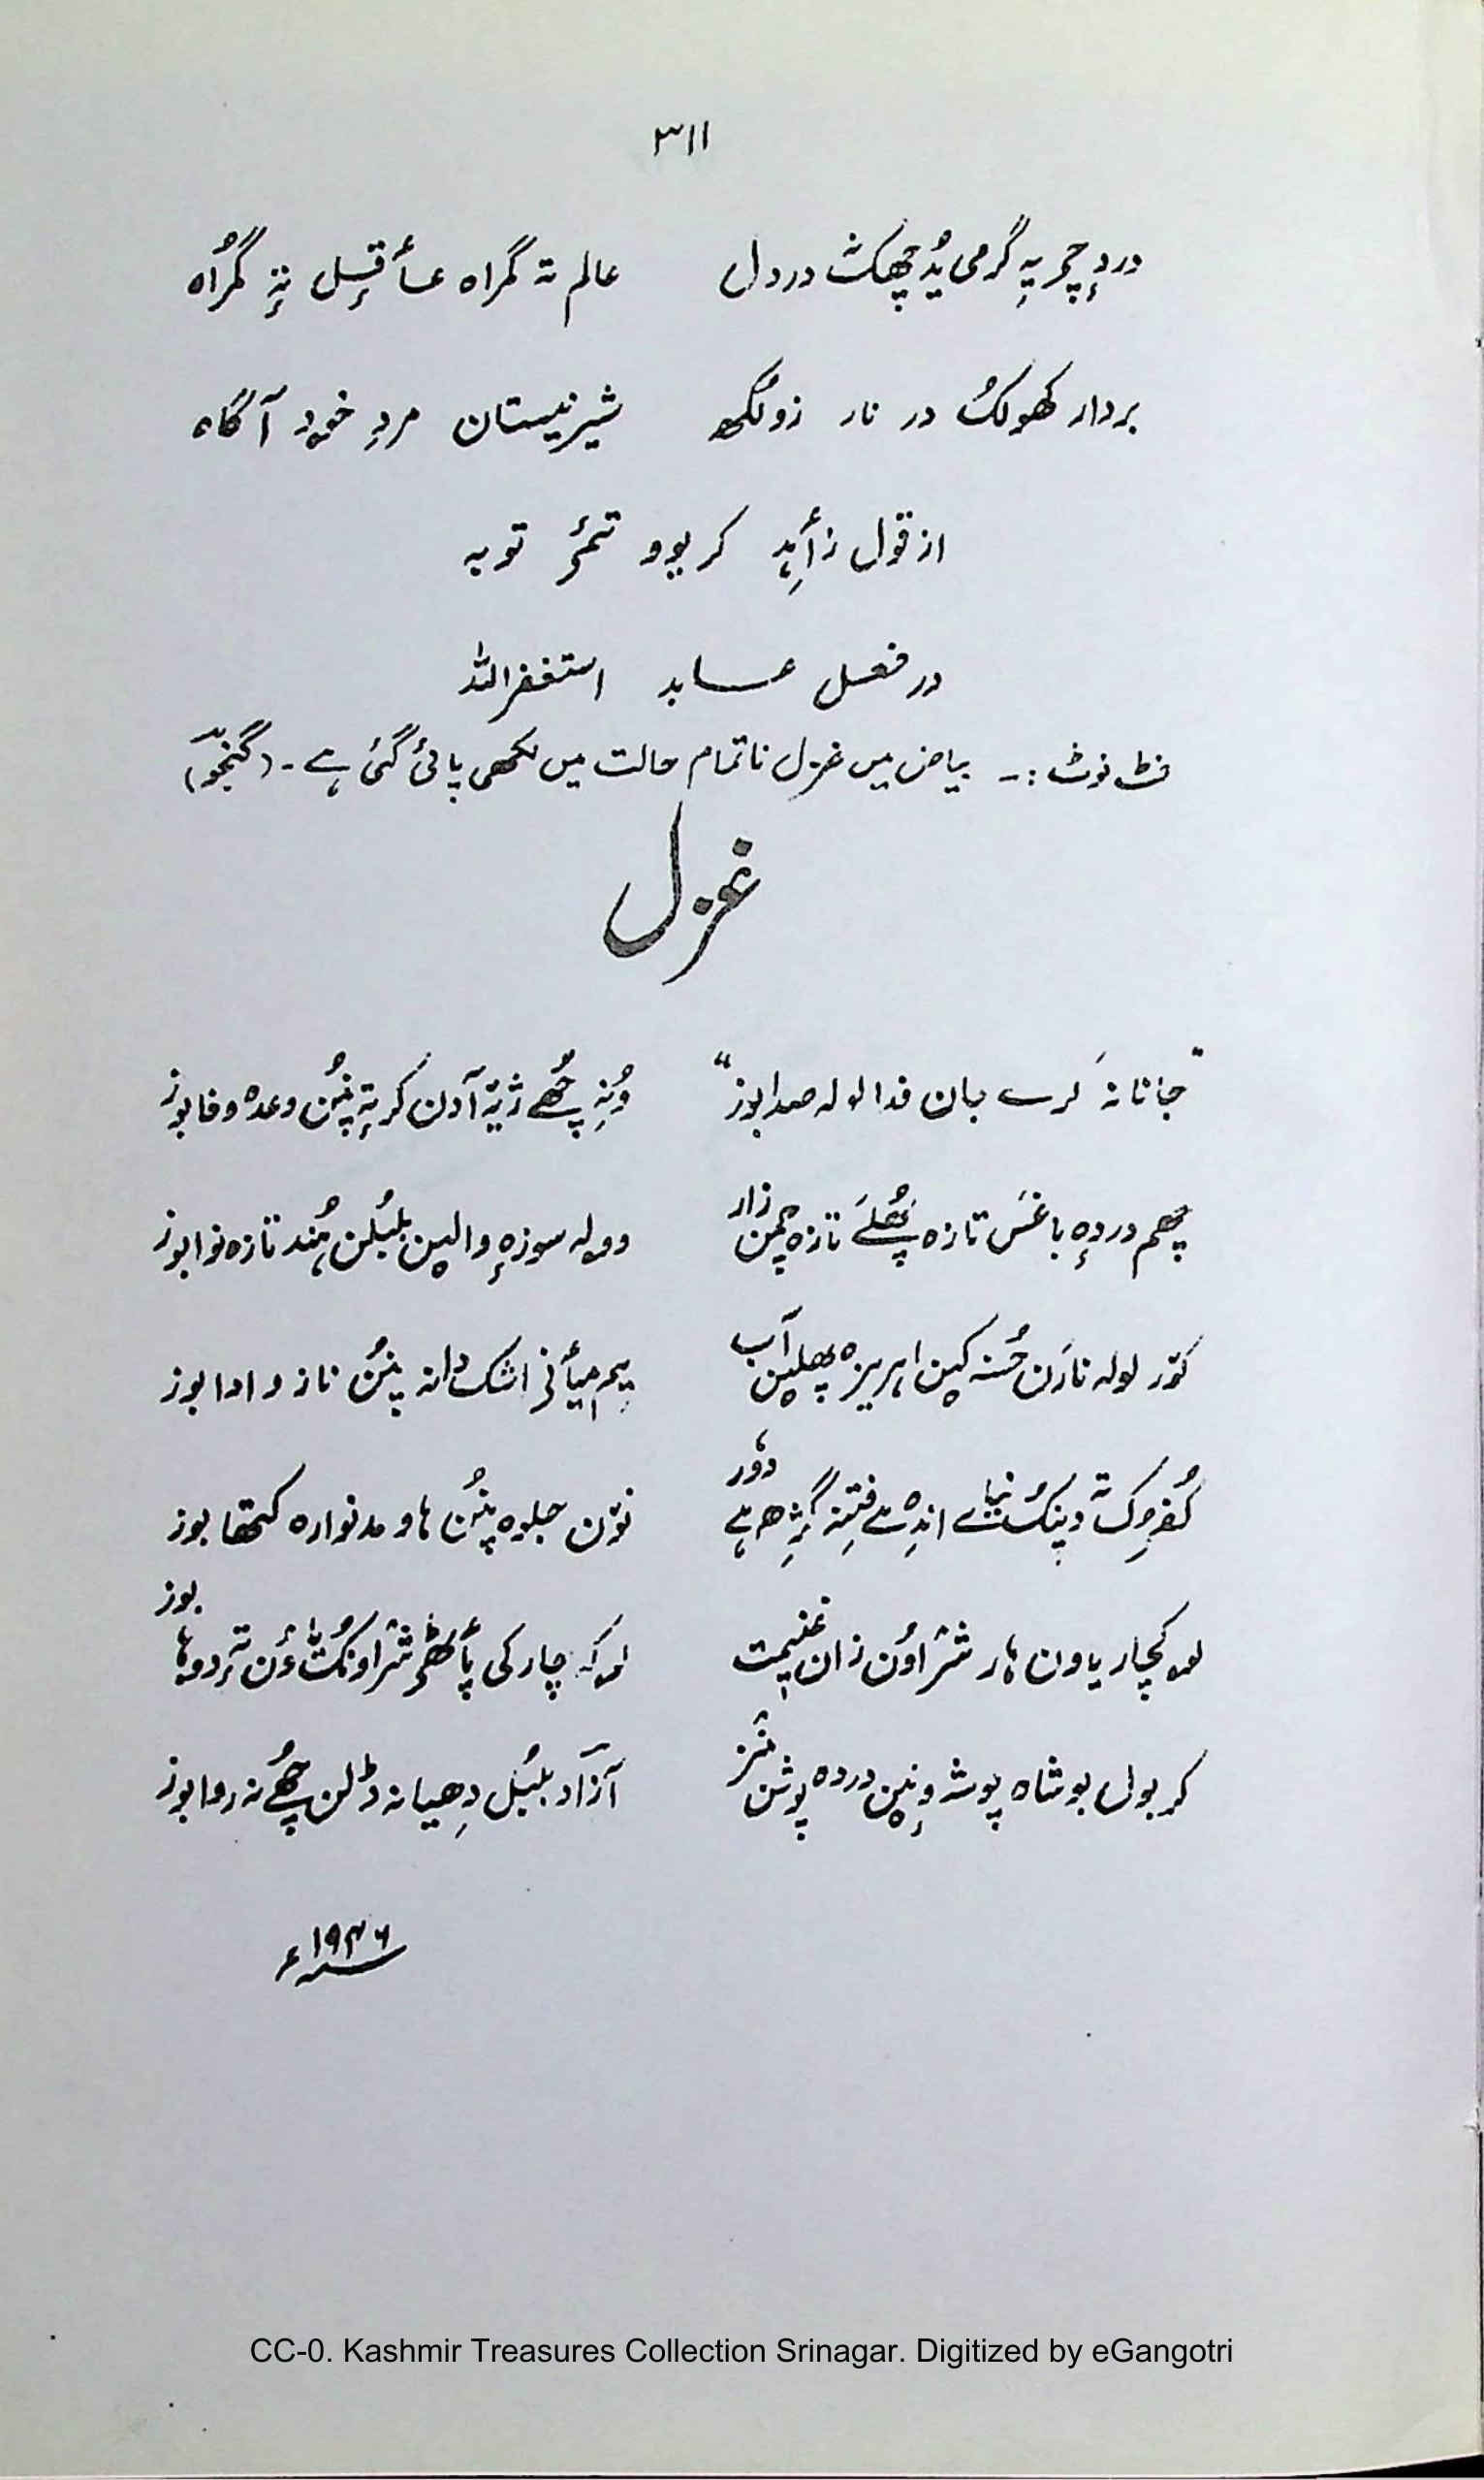 ۳۱۱
دردٕ چمریہِ گرمی یُد چھکٹ دردل عالم تہ گمراہ عأقِل تہٕ گمُراہ
بردار کھولکُ در نار زولُکھ شیر نیستان مردِ خود آگاہ
از قول زأہِد کریوو تمۍ توبہ
در فعل عابد استغفراللہ
فٹ نوٹ :۔ بیاض میں غزل ناتمام حالت میں لکھی پائی گئی ہے ۔ (گنجو)
غزل
"جانانہ کرے جان فدا لولہ صدا بوز" وُنہِ چھُے ژےٚ آدن کرتہٕ پنُن وعدہ وفا بوز
چھم دردٕہ باغَس تازہ پھُلَے تازہ چمن زار وولہ سوزٕہ والین بلبُلن ہُند تازہ نوا بوز
کوٚر لولہ نارَن حُسنہ کین اہریزہ پھلین آب یم میأنی اشک دانہ پنُن ناز و ادا بوز
کُفرُک تہٕ دینُک نیاے اندِ ہے فتنہٕ گژھ ہے دوٗر نوٚن جلوہ پنُن ہاو مدنوارہ کتھا بوز
لۄکچار یاون ہار شرٛاوُن زان غنیمت لۄکہ چارکی پأٹھۍ شرٛاونُک ... تہٕ دوہا بوز
کر بول بوشاہ پوشہ ونین دردہ پوشن منٛز آزاد بلبُل دِھیانہ ڈلن چھُے نہ روا بوز
۱۹۳۶ء
CC-0. Kashmir Treasures Collection Srinagar. Digitized by eGangotri